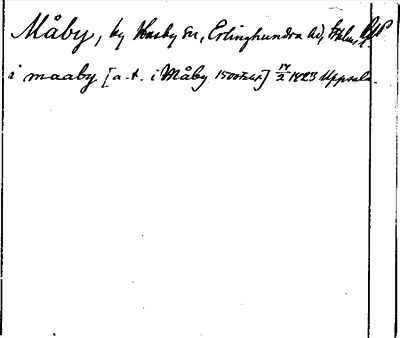 Måby, by Husby sn, Erlinghundra hd, Sthlms l. Up
i maaby [a.t. i Måby 1500 talet] 14/2 1823 Uppsala.